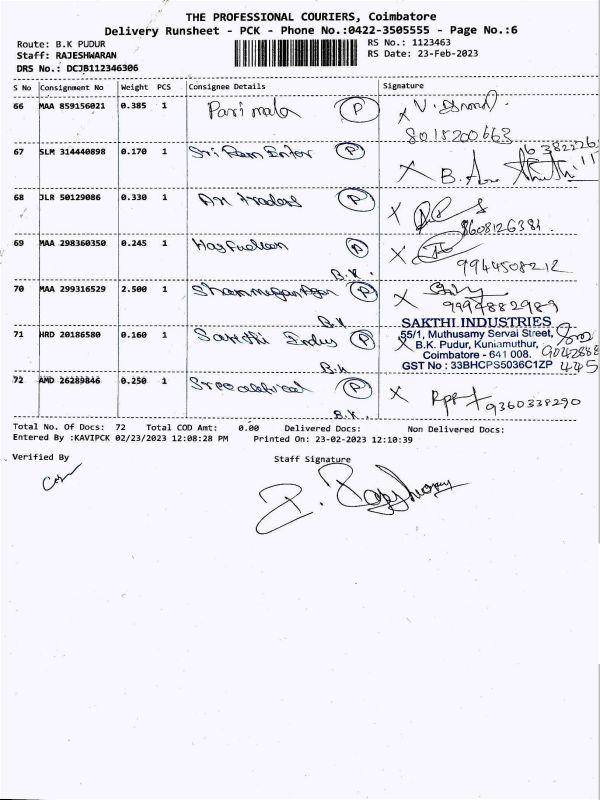 THE PROFESSIONAL COURIERS, Coimbatore
Delivery Runsheet - PCK - Phone No.:0422-3505555 - Page No.:6
Route: B.K PUDUR
RS No.: 1123463
Staff: RAJESHWARAN
RS Date: 23-Feb-2023
DRS No.: DCJB112346306
S No Consignment No Weight PCS Consignee Details Signature
66 MAA 859156021 0.385 1 Parimala P X
8015200663
67 SLM 314440898 0.170 1 Sri Ram P X B.
68 JLR 50129086 0.330 1 traders P X
8608126381.
69 MAA 298360350 0.245 1 P X
B.K. 9944508212
70 MAA 299316529 2.500 1 P X
B.K 9994882989
SAKTHI INDUSTRIES
71 HRD 20186580 0.160 1 Sakthi Indus P X 55/1, Muthusamy Servai Street,
B.K. Pudur, Kuniamuthur,
B.K Coimbatore - 641 008.
GST No : 33BHCPS5036C1ZP 445
72 AMD 26289846 0.250 1 P X
B.K. 9360338290
Total No. Of Docs: 72 Total COD Amt: 0.00 Delivered Docs: Non Delivered Docs:
Entered By :KAVIPCK 02/23/2023 12:08:28 PM Printed On: 23-02-2023 12:10:39
Verified By Staff Signature